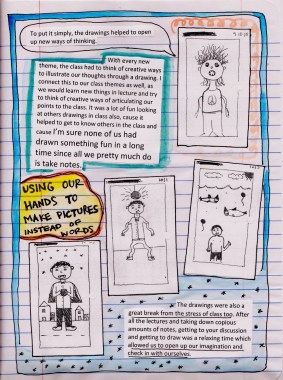 To put it simply, the drawings helped to open
up new ways of thinking.
With every new
theme, the class had to think of creative ways
to illustrate our thoughts through a drawing. I
connect this to our class themes as well, as
we would learn new things in lecture and try
to think of creative ways of articulating our
points to the class. It was a lot of fun looking
at others drawings in class also, cause it
helped to get to know others in the class and
cause I'm sure none of us had
drawn something fun in a long
time since all we pretty much do
is take notes.
USING OUR
HANDS TO
MAKE PICTURES
INSTEAD OF
WORDS
The drawings were also a
great break from the stress of class too. After
all the lectures and taking down copious
amounts of notes, getting to your discussion
and getting to draw was a relaxing time which
allowed us to open up our imagination and
check in with ourselves.